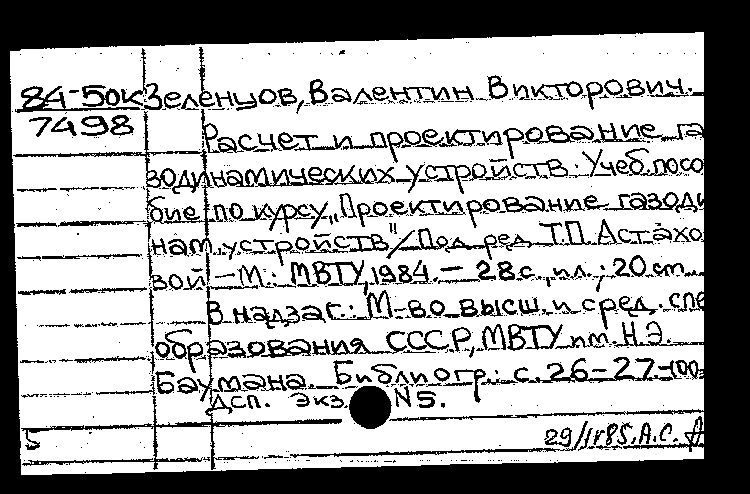 84-50к Зеленцов, Валентин Викторович.
7498
Расчет и проектирование га
зодинамических устройств: Учеб. посо
бие по курсу „Проектирование газоди
нам. устройств"/Под ред. Т.П. Астахо
вой – М.: МВТУ, 1984. – 28 с., ил.; 20 см.
В надзаг.: М-во высш. и сред. спе
образования СССР, МВТУ им. Н.Э.
Баумана. Библиогр.: с. 26-27.
Дсп. Экз. N5.
5
А.С.